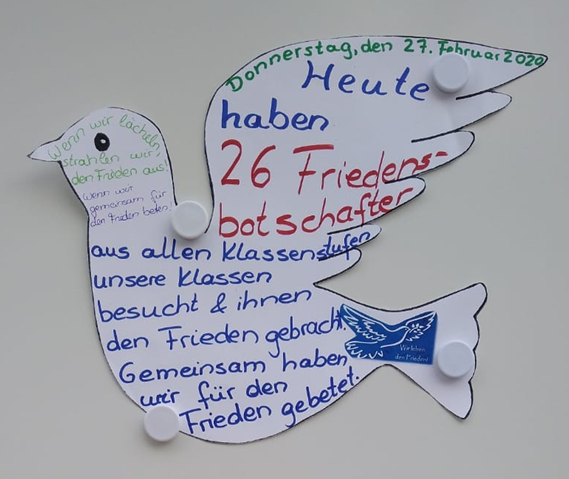 Donnerstag, den 27. Februar 2020
Heute
haben
26 Friedens-
botschafter
aus allen Klassenstufen
unsere Klassen
besucht & ihnen
den Frieden gebracht.
Gemeinsam haben
wir für den
Frieden gebetet.
Wenn wir lächeln,
strahlen wir
den Frieden aus!
Wenn wir
gemeinsam für
den Frieden beten!
Wir leben
den Frieden!